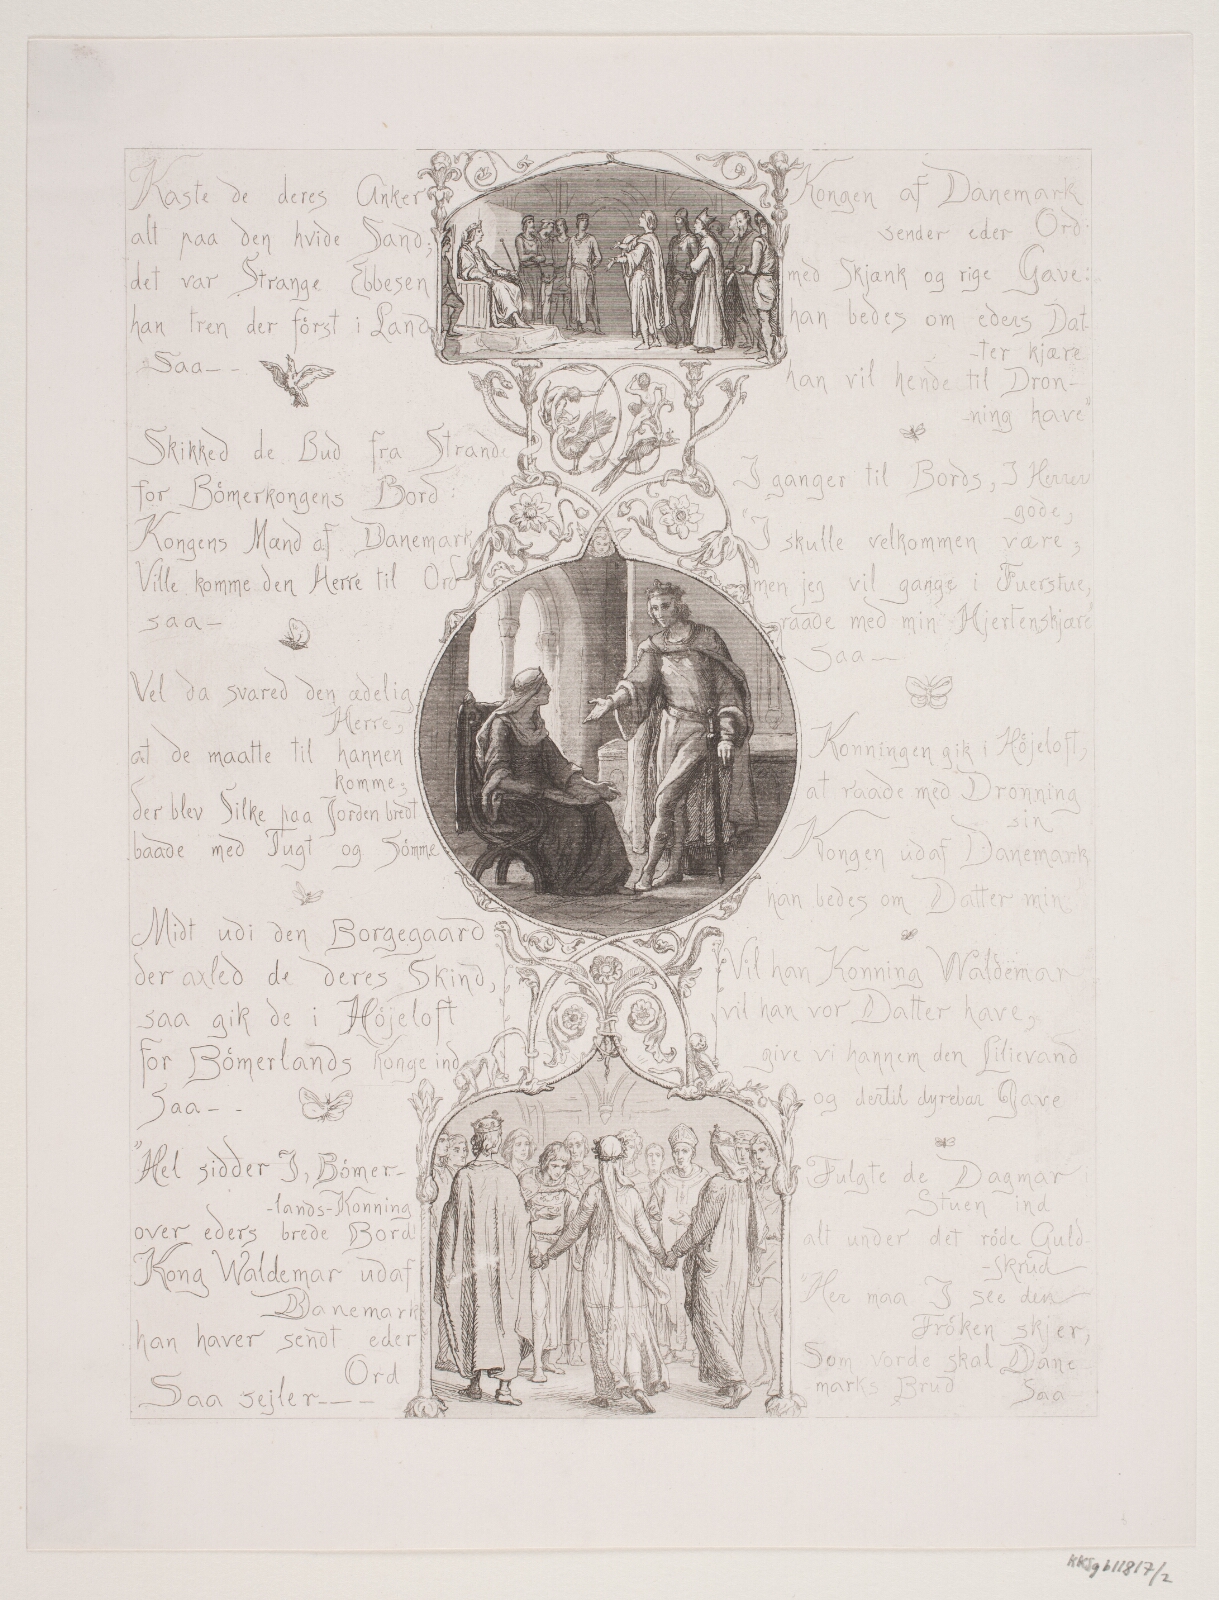 Kaste de deres Anker
alt paa den hvide Sand;
det var Strange Ebbesen
han tren der först i Land
Saa--
Skikked de Bud fra Strande
for Bömerkongens Bord:
Kongens Mænd af Danemark
Ville komme den Herre til Ord
saa-
Vel da svared den ædelig
Herre,
at de maatte til hannen
komme;
der blev Silke paa Jorden bredt
baade med Tugt og Sömme
Midt udi den Borgegaard
der axled de deres Skind,
saa gik de i Höjeloft
for Bömerlands Konge ind
Saa--
"Hel sidder I, Bömer-
-lands-Konning
over eders brede Bord
Kong Waldemar udaf
Danemark
han haver sendt eder
Ord
Saa sejler---
Kongen af Danemark
sender eder Ord
med Skjænk og rige Gave:
han bedes om eders Dat-
-ter kjære
han vil hende til Dron-
-ning have"
I ganger til Bords, I Herrer
gode,
"I skulle velkommen være;
men jeg vil gange i Fuerstue,
raade med min Hjertenskjære"
Saa-
Konningen gik i Höjeloft,
at raade med Dronning
sin
Kongen udaf Danemark
han bedes om Datter min:
Vil han Konning Waldemar
vil han vor Datter have,
give vi hannem den Lilievand
og dertil dyrebar Gave
Fulgte de Dagmar i
Stuen ind
alt under det röde Guld-
-skrud
"Her maa I see den
Fröken skjer,
Som vorde skal Dane-
marks Brud
Saa-
KKSgb11817/2